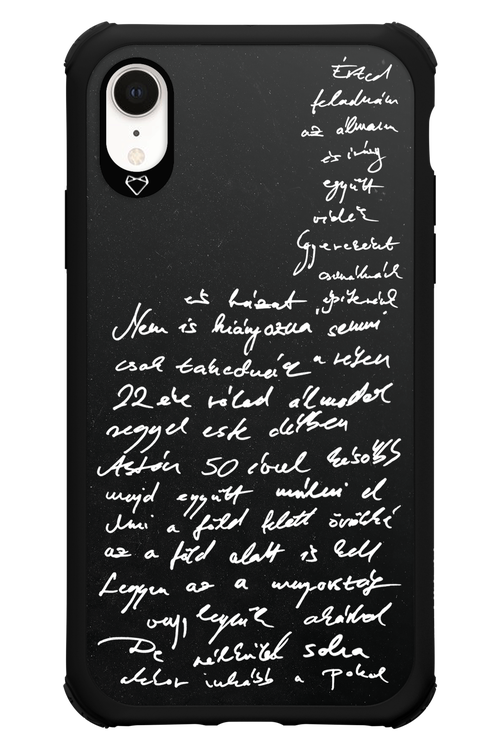 Érted
feladnám
az álmaim
és irány
együtt
vidék
Gyereket
csinálnék
és házat építenék
Nem is hiányozna semmi
csak takednék a részem
22 éve rólad álmodok
reggel este délben
Aztán 50 évvel később
majd együtt múlni el
Ami a föld felett örökké
az a föld alatt is kell
Legyen az a mennyország
vagy legyünk akárhol
De nélküled soha
akkor inkább a pokol